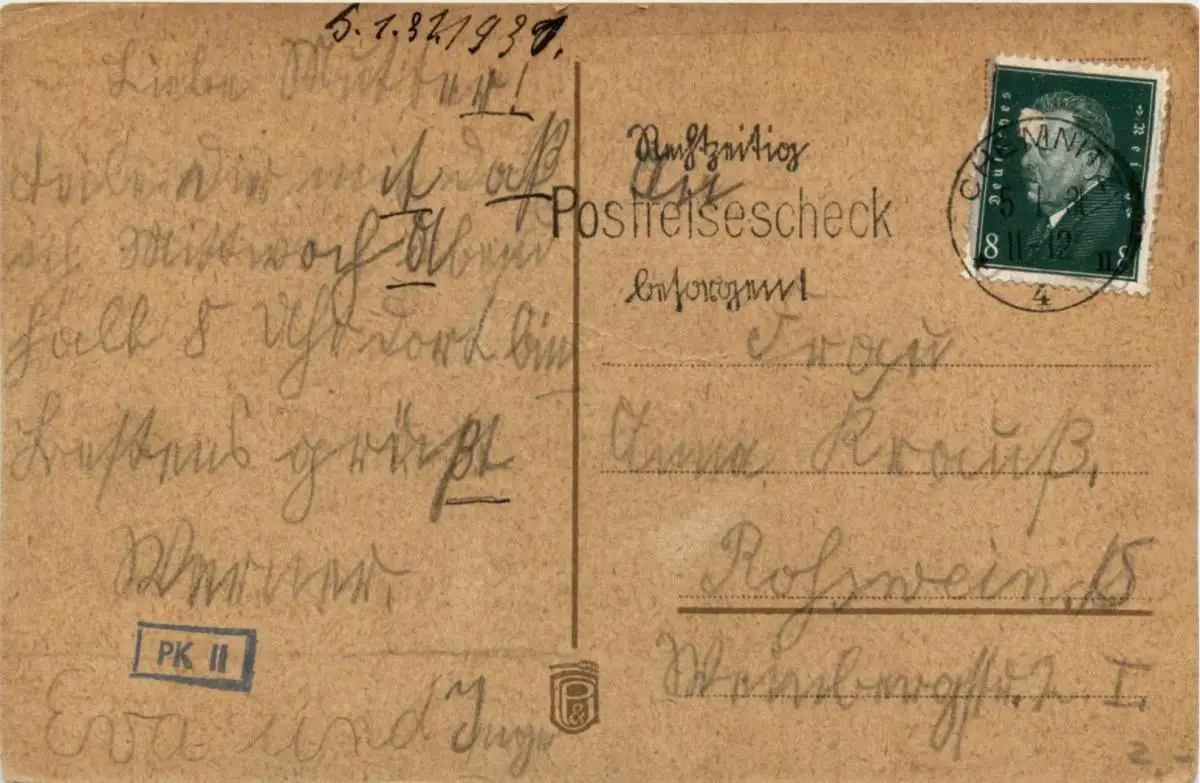 5.1.31/1931.
Liebe Mutter!
Teile dir mit daß
ich Mittwoch Abend
halb 8 Uhr dort bin
Bestens grüßt
Werner.
PK II
Eva und Inge
Rechtzeitig
Postreisescheck
besorgen!
An
Frau
Anna Krauß,
Roßwein i/S
Weinbergstr.
Deutsches Reich
8 8
CHEMNITZ
5 1 31
11-12
4